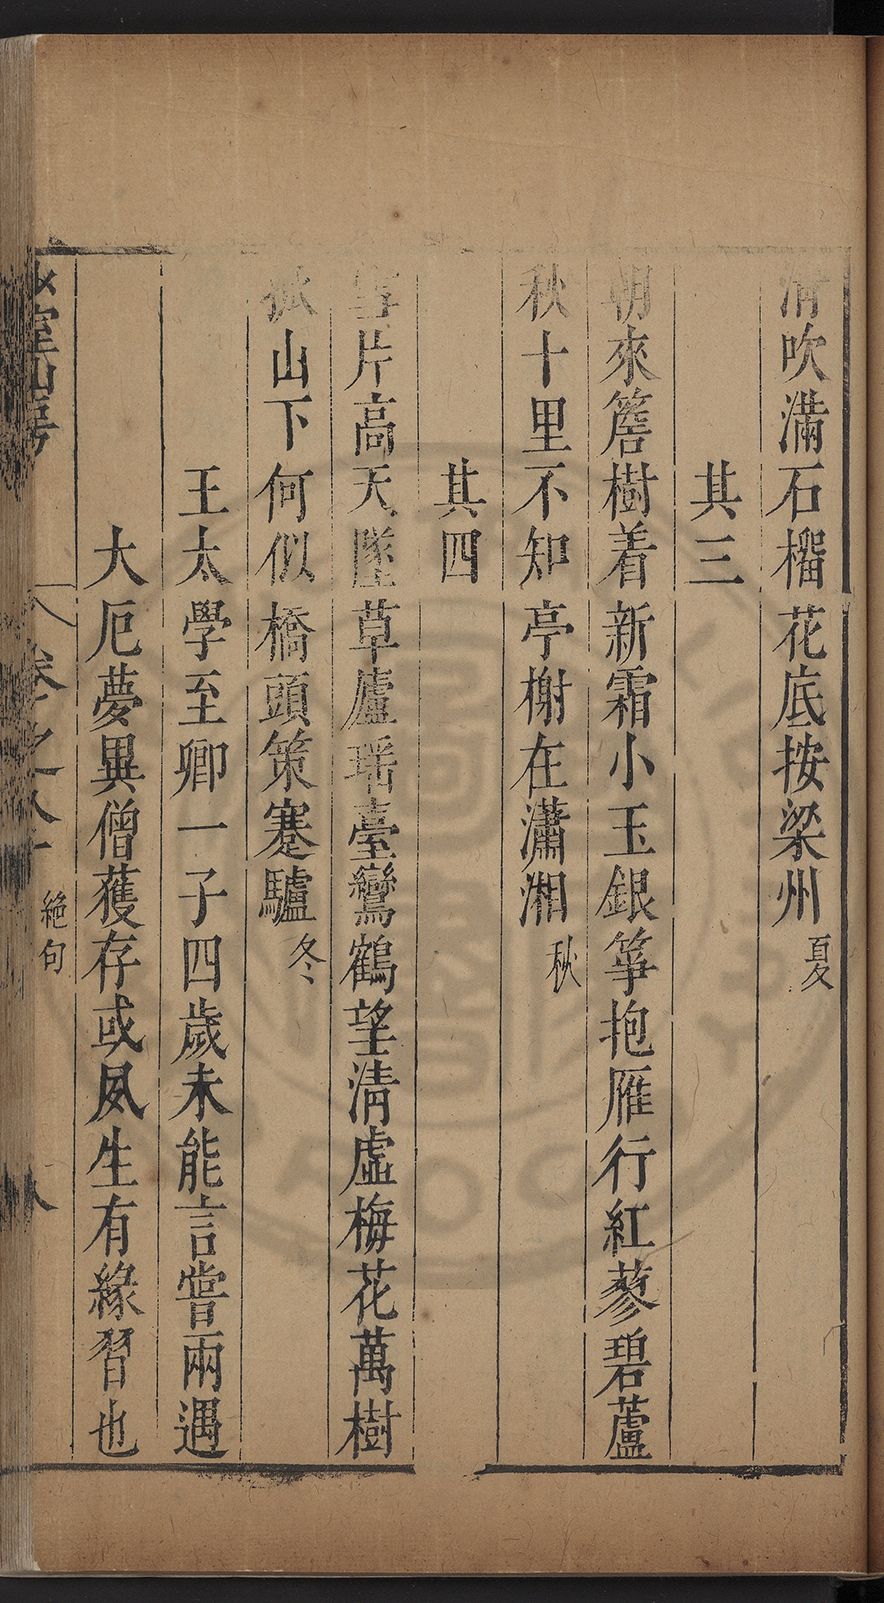 清吹滿石榴花底按梁州夏
其三
朝來簷樹着新霜小玉銀箏抱雁行紅蓼碧蘆
秋十里不知亭榭在瀟湘秋
其四
雪片高天墜草廬瑶臺鸞鶴望淸虛梅花萬樹
孤山下何似橋頭策蹇驢冬
王太學至卿一子四歲未能言嘗兩遇
大厄夢異僧獲存或夙生有緣習也
山房
卷之八十
絶句
八